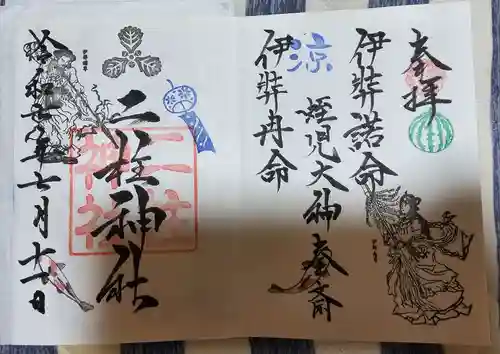 奉拝
伊弉諾命
涼
蛭児大神奉斎
伊弉冉命
二柱神社
二柱
神社
令和七年七月十一日